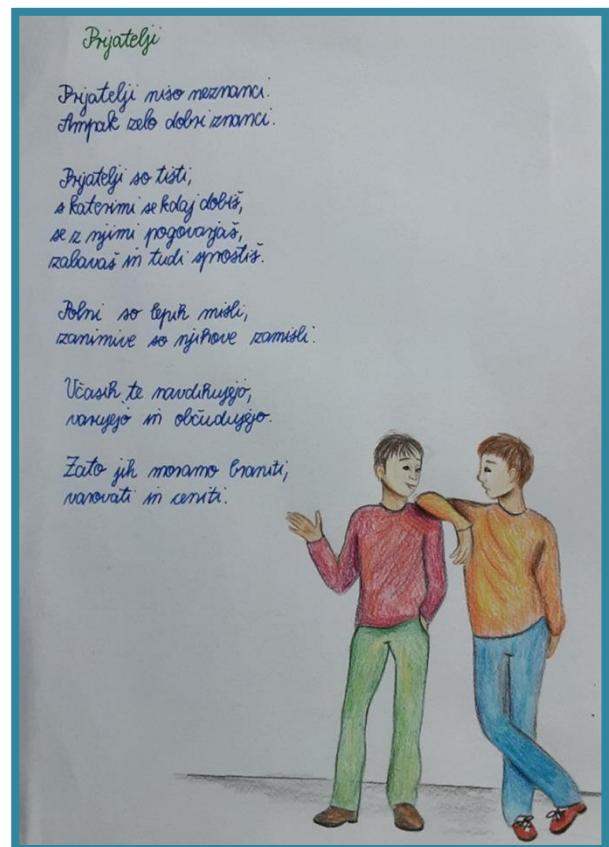 Prijatelji
Prijatelji niso neznanci.
Ampak zelo dobri znanci.
Prijatelji so tisti,
s katerimi se kdaj dobiš,
se z njimi pogovarjaš,
zabavaš in tudi sprostiš.
Polni so lepih misli,
zanimive so njihove zamisli.
Včasih te navdihujejo,
varujejo in občudujejo.
Zato jih moramo braniti,
varovati in ceniti.